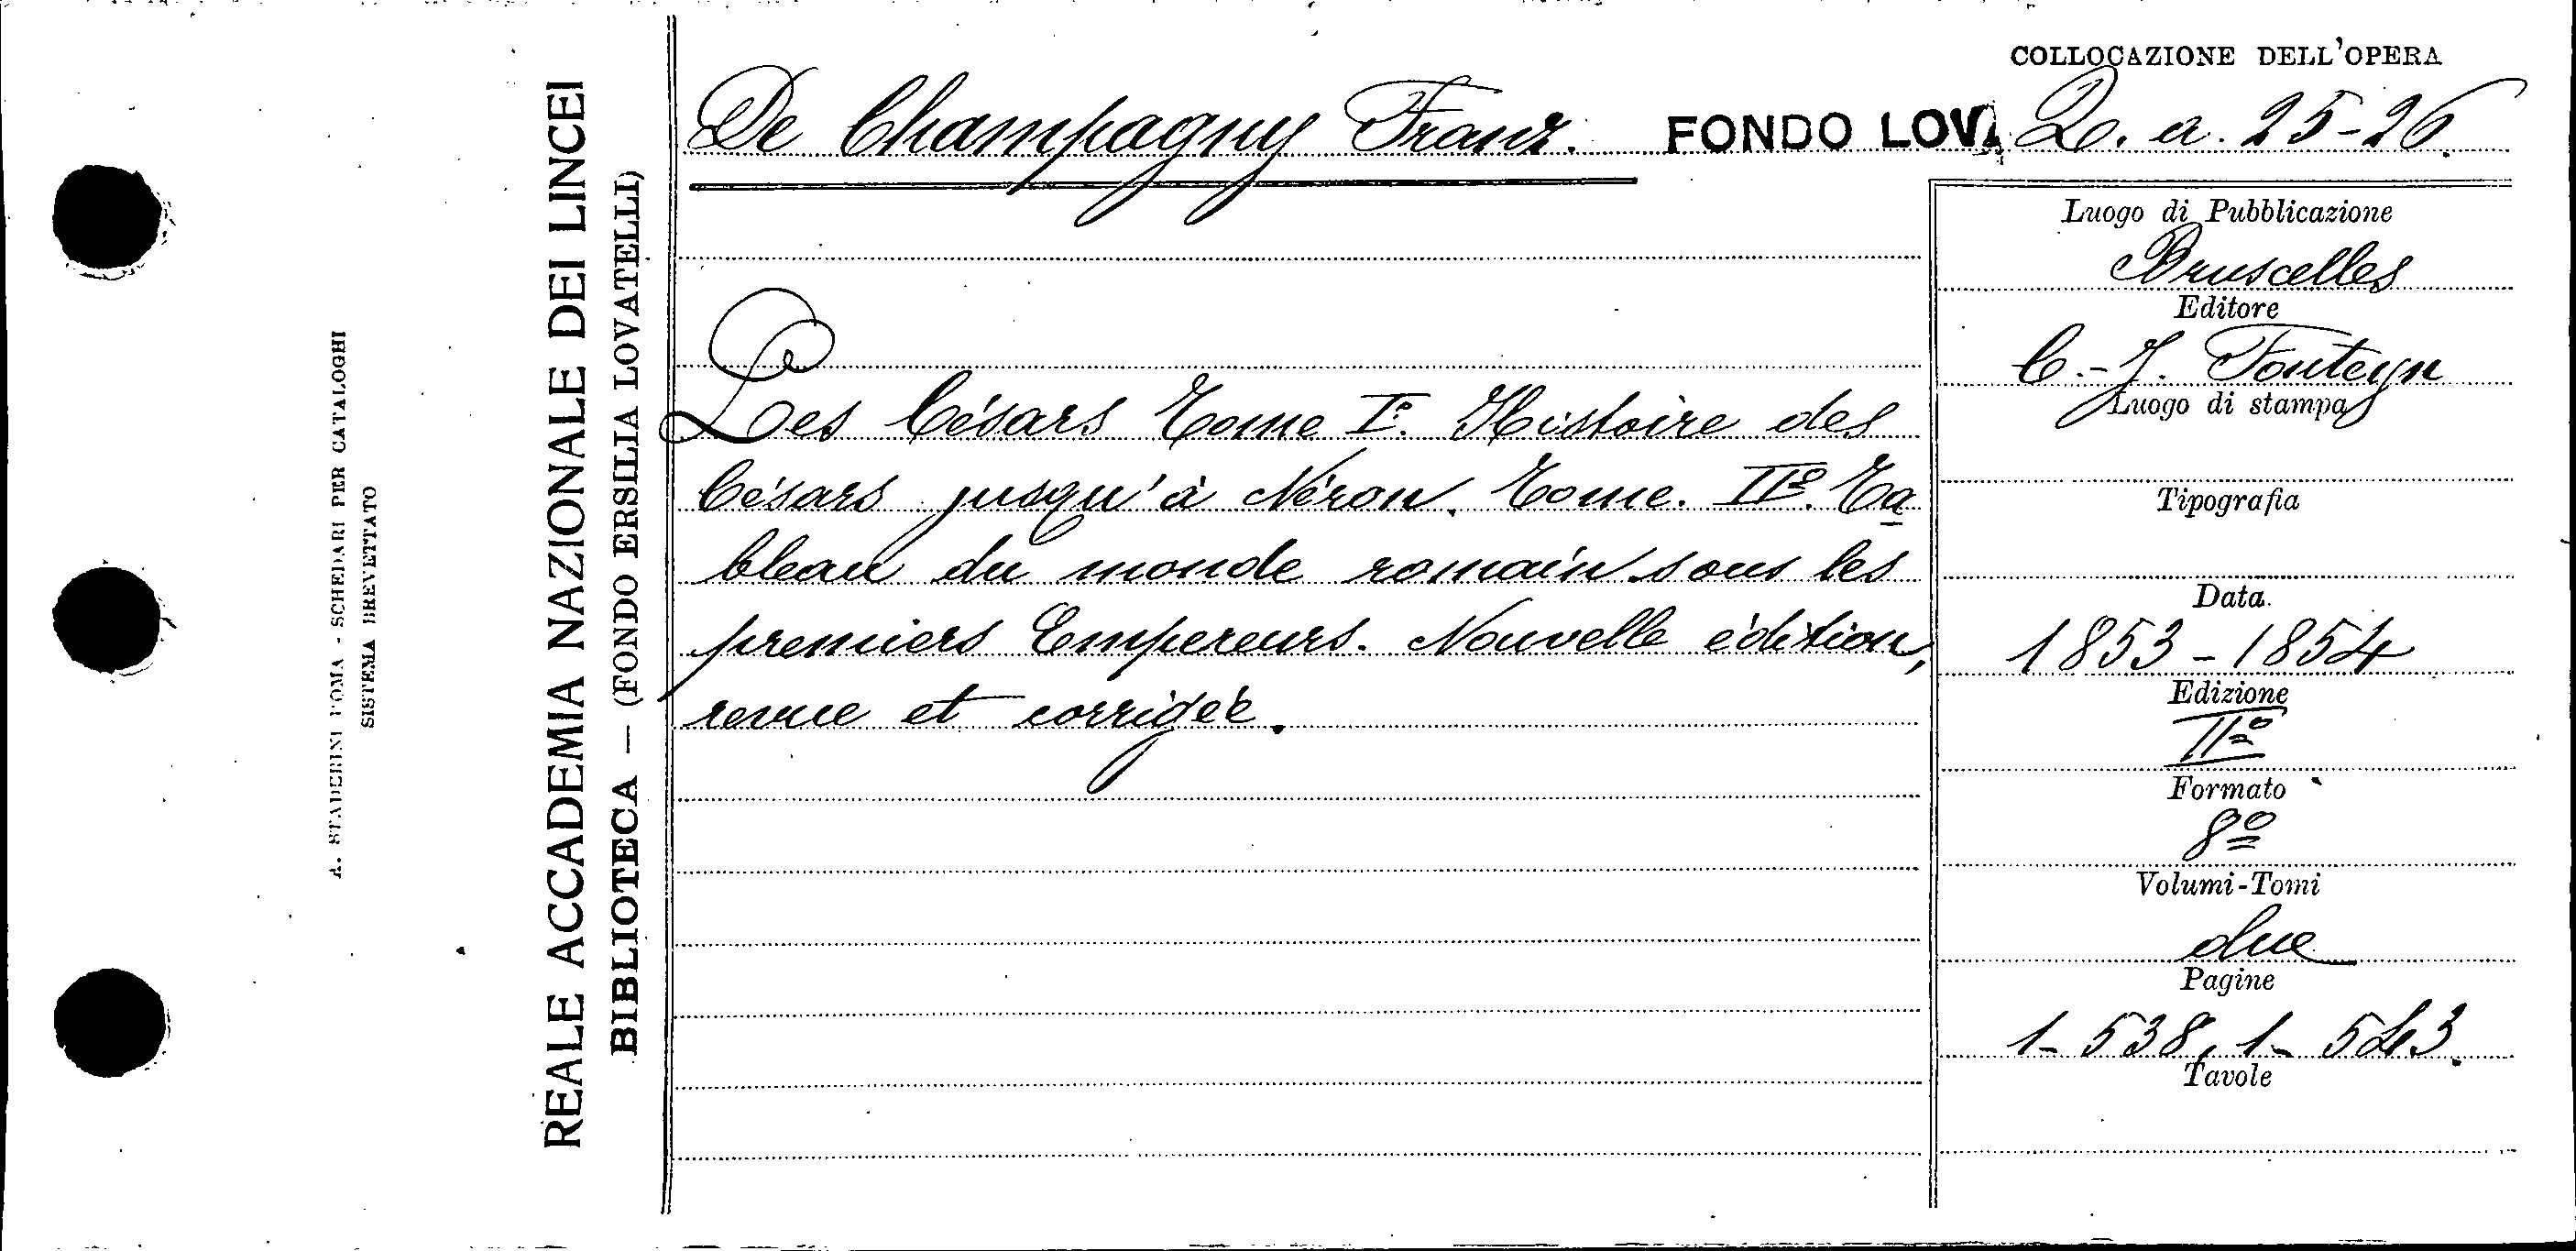 A. STADERINI ROMA - SCHEDARI PER CATALOGHI
SISTEMA BREVETTATO
REALE ACCADEMIA NAZIONALE DEI LINCEI
BIBLIOTECA — (FONDO ERSILIA LOVATELLI)
COLLOCAZIONE DELL'OPERA
De Champagny Franz. FONDO LOV. 2. a. 25-26.
Les Césars Tome I°. Histoire des
Césars jusqu'à Néron. Tome. II°. Ta
bleau du monde romain sous les
premiers Empereurs. Nouvelle édition,
revue et corrigée.
Luogo di Pubblicazione
Bruscelles
Editore
C.-J. Fonteyn
Luogo di stampa
Tipografia
Data.
1853-1854
Edizione
IIª
Formato
8º
Volumi-Tomi
due
Pagine
1-538, 1-543.
Tavole